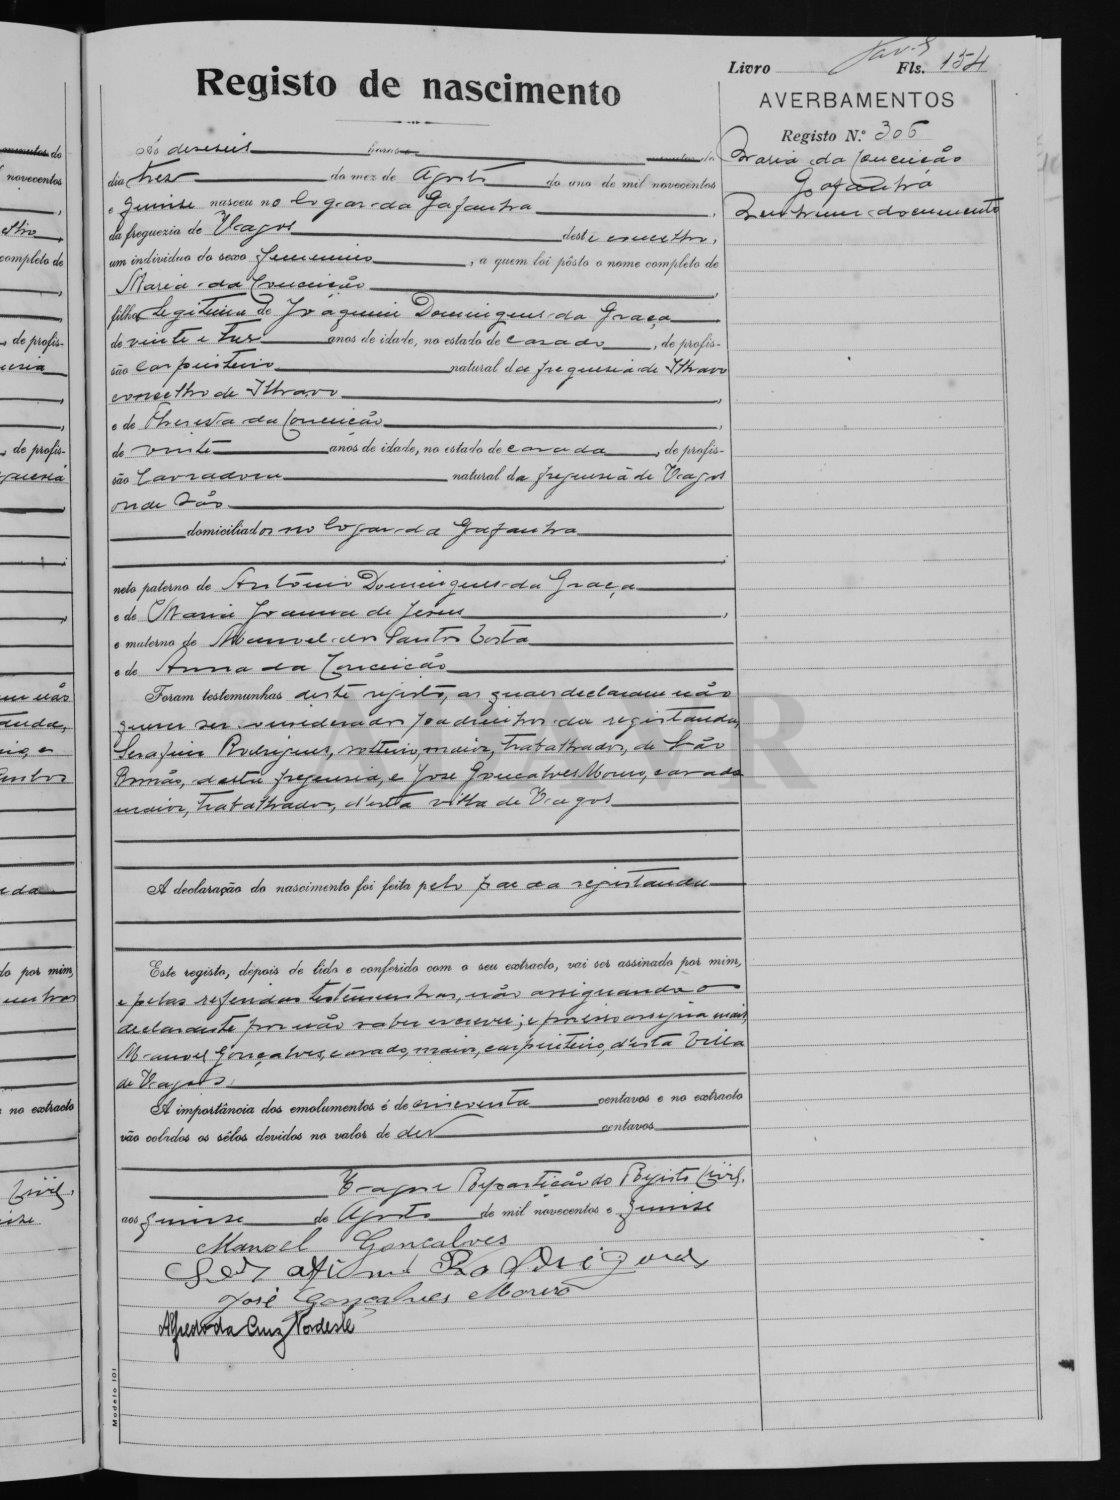 Livro Fls. 154
Registo de nascimento
AVERBAMENTOS
Registo N.º 306
Maria da Conceição
Gafanha
Nenhum documento
Ás deseseis horas
dia tres do mez de Agosto do ano de mil novecentos
e quinse nasceu no logar da Gafanha,
da freguezia de Vagos deste concelho,
um individuo do sexo femenino, a quem foi pôsto o nome completo de
Maria da Conceição,
filha legitima de Joáquim Domingues da Graça
de vinte e tres anos de idade, no estado de casado, de profis-
são carpinteiro natural da freguesia de Ilhavo
concelho de Ilhavo,
e de Thereza da Conceição,
de vinte anos de idade, no estado de casada, de profis-
são lavradora natural da freguesia de Vagos
onde são
domiciliados no logar da Gafanha
neto paterno de António Domingues da Graça
e de Maria Joanna de Jesus,
e materno de Manoel dos Santos Costa
e de Anna da Conceição
Foram testemunhas deste registo, as quaes declaram não
querer ser considerados padrinhos da registanda,
Serafim Rodrigues, solteiro, maior, trabalhador, de São
Romão, desta freguesia, e José Gonçalves Moreno, casado
maior, trabalhador, d'esta villa de Vagos
A declaração do nascimento foi feita pelo pae da registanda
Este registo, depois de lido e conferido com o seu extracto, vai ser assinado por mim,
e pelas referidas testemunhas, não assignando o
declarante por não saber escrever; e por isso assigna mais,
Manoel Gonçalves, casado, maior, carpinteiro, d'esta Villa
de Vagos.
A importância dos emolumentos é de cincoenta centavos e no extracto
vão colados os sêlos devidos no valor de dez centavos
Vagos e Repartição do Registo Civil,
aos quinse de Agosto de mil novecentos e quinse
Manoel Gonçalves
Serafim Rodrigues
José Gonçalves Moreno
Alfredo da Cruz Nordeste
Modelo 101
ADAVR